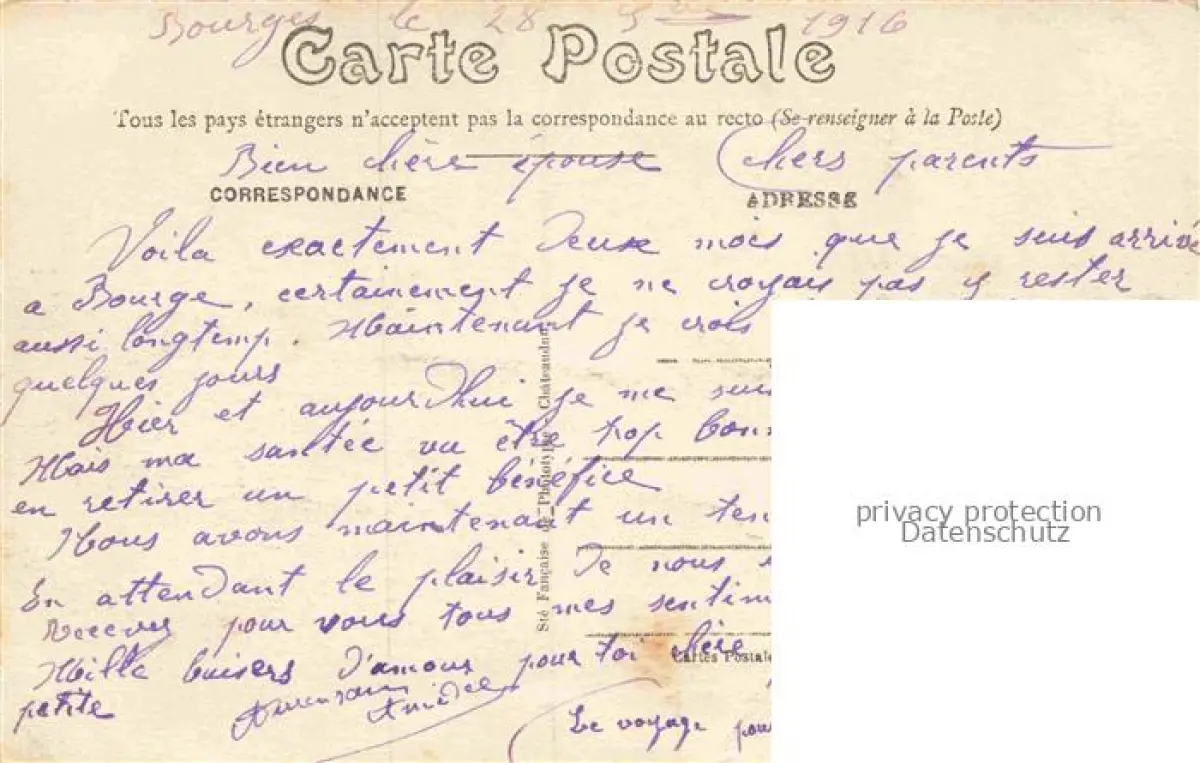 Bourges le 28 9bre 1916
Carte Postale
Tous les pays étrangers n'acceptent pas la correspondance au recto (Se renseigner à la Poste)
Bien chère épouse Chers parents
CORRESPONDANCE
ADRESSE
Voila exactement deux mois que je suis arrivé
a Bourge, certainement je ne croyais pas y rester
aussi longtemp. Maintenant je crois
quelques jours
Hier et aujourd'hui je me suis
Mais ma santée vu être trop bonn
en retirer un petit bénéfice
Nous avons maintenant un tem
En attendant le plaisir de nous
Recevez pour vous tous mes sentim
Mille baisers d'amour pour toi chère
petite
Amédée
Le voyage pour
Sté Française de Phototypie Châteaudun
Cartes Postale
privacy protection
Datenschutz